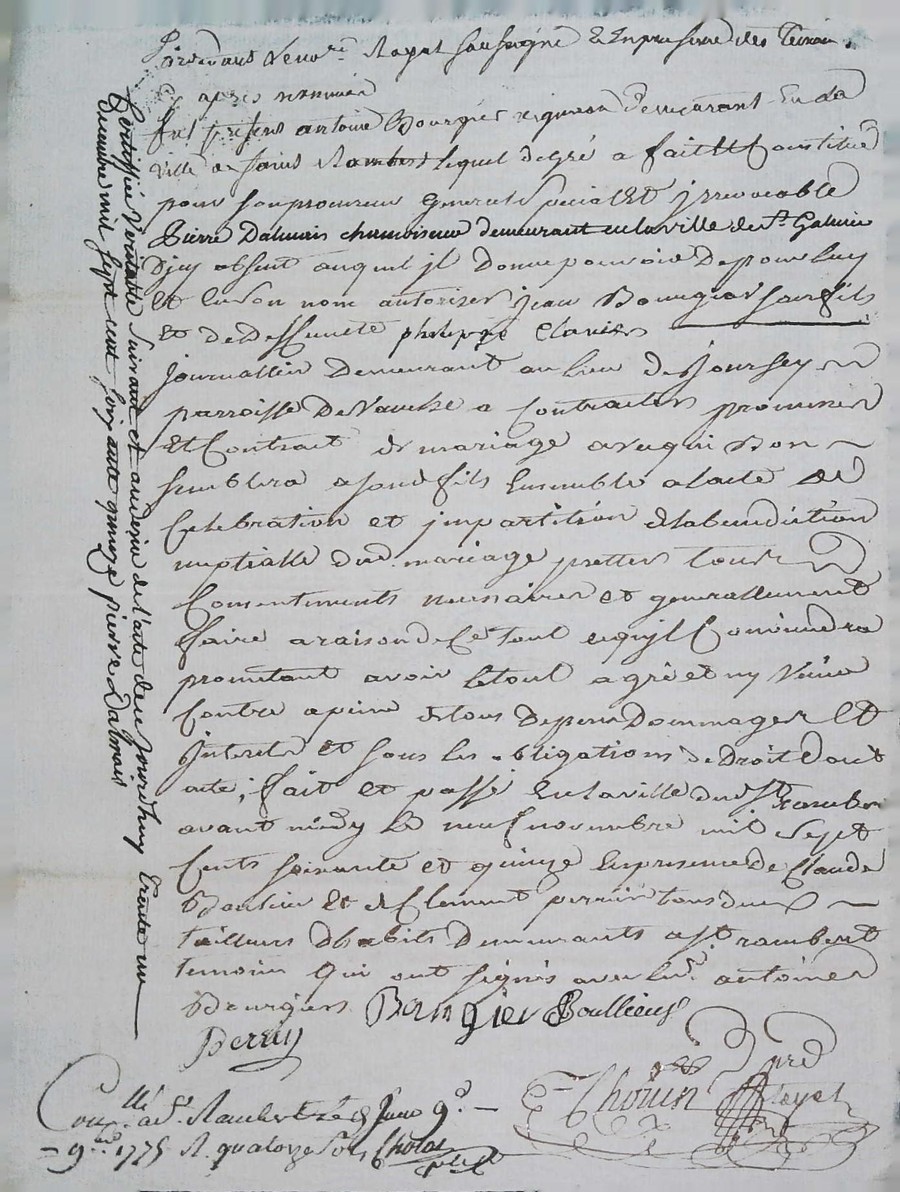 Pardevant le no.re Royal soussigné & En presence des Temoins
cy apres nommés
fut present antoine Bourgier vigneron demeurant En da
ville de saint Rambert lequel de gré a fait et Constitué
pour son procureur general special Et jrrevocable
Pierre Dalmais chamoiseur demeurant en la ville de s.t Galmier
D'jcy absent auquel jl donne pouvoir De pour luy
Et en son nom autoriser jean Bourgier son fils
Et de deffuncte philippe Clavier
journallier Demeurant au lieu de joursey
parroisse De a Contracter promesses
Et Contrait de mariage avec qui Bon
semblera a son d fils Ensemble a l'acte de
Celebration et jmpartition de la benediction
nuptialle dud. mariage pretter tous
Consentements necessaires et generallement
faire a raison de Ce tout ce qu'jl Conviendra
promettant avoir le tout a gré et ny venir
Contre a peine de tous depens Dommages Et
jnterets et sous les obligations de Droit dont
acte, fait et passé En la ville du St Rambert
avant midy Le neuf novembre mil sept
Cents soixante et quinze En presence de Claude
Boulieu Et de Clement perrin tous deux
tailleurs d'habits Demeurants a St rambert
temoins qui ont signés avec led. antoine
Bourgier Bourgier Boullieu
Perrin
Thoüin Royer
Con.llé a St. Rambert le 9.e
9.bre 1775 R. quatorze sols
Certiffié veritable suivant et au desir de l'acte de ce jourd'huy trente un
Decembre mil sept cent soixante quinze pierre Dalmais